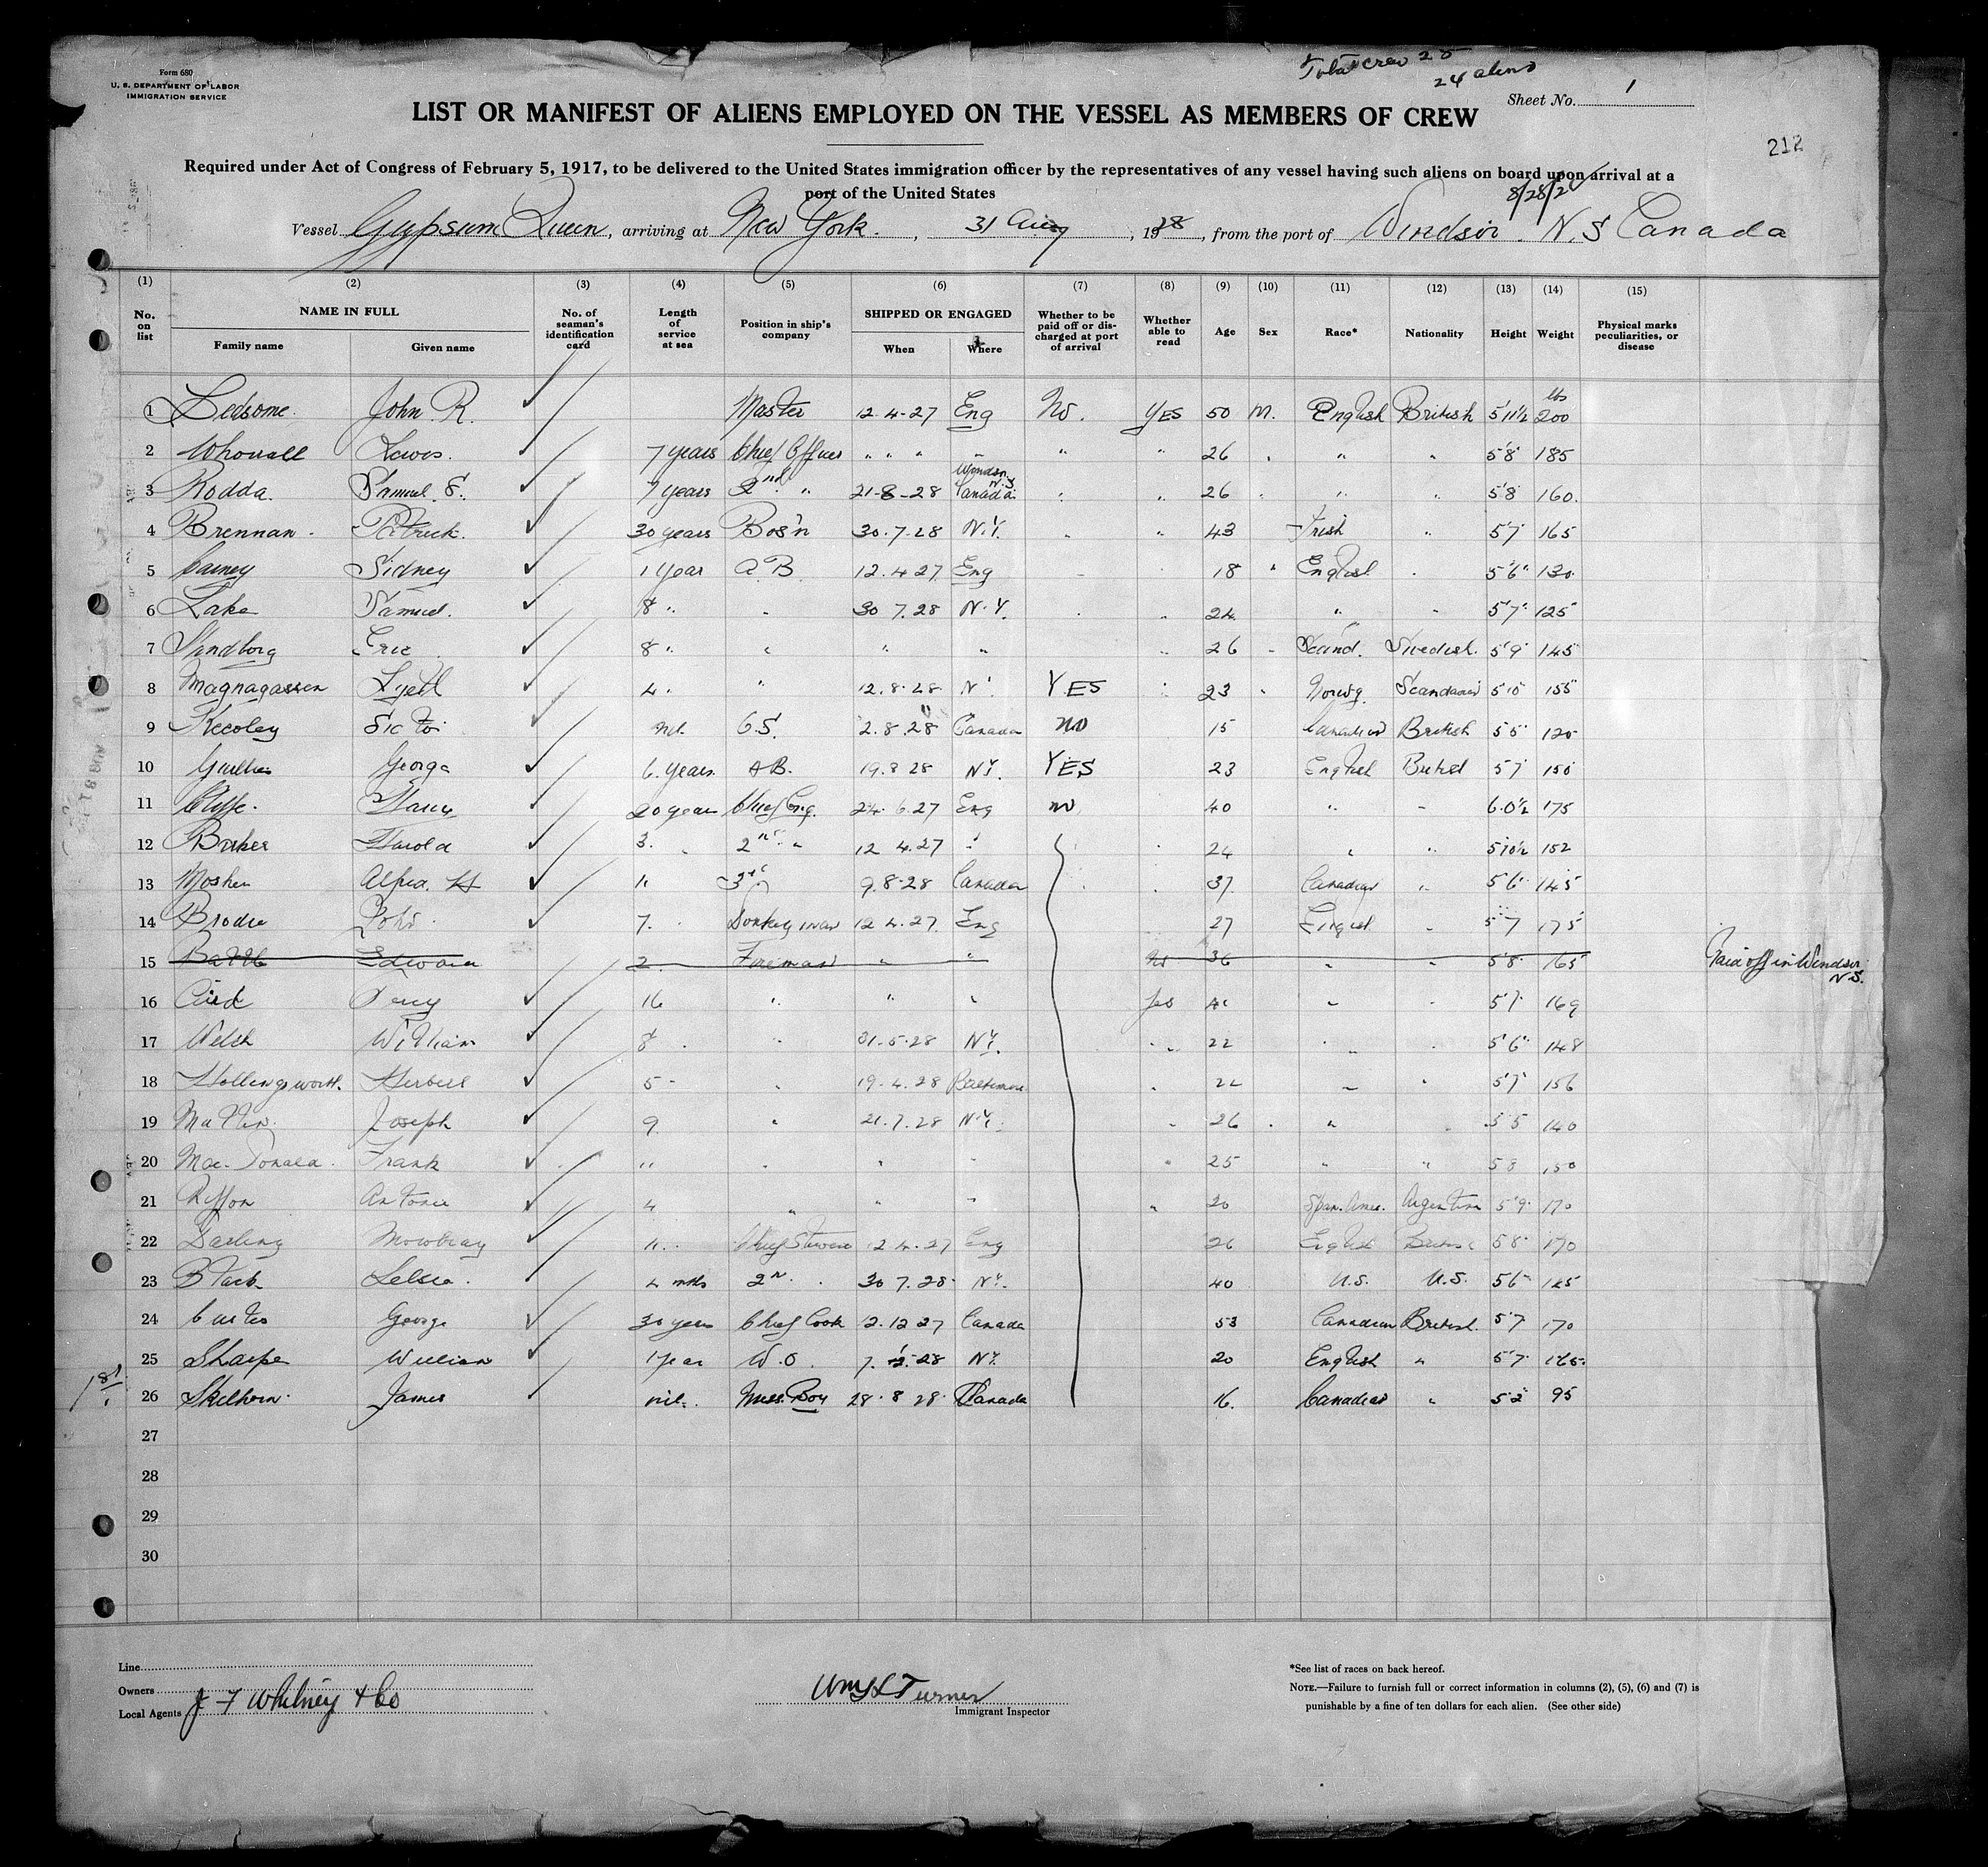 Form 680
U. S. DEPARTMENT OF LABOR
IMMIGRATION SERVICE
Total crew 25
24 aliens
Sheet No. 1
LIST OR MANIFEST OF ALIENS EMPLOYED ON THE VESSEL AS MEMBERS OF CREW
212
Required under Act of Congress of February 5, 1917, to be delivered to the United States immigration officer by the representatives of any vessel having such aliens on board upon arrival at a
port of the United States
8/28/28
Vessel Gypsum Queen, arriving at New York., 31 Aug, 1928, from the port of Windsor. N.S Canada
(1) (2) (3) (4) (5) (6) (7) (8) (9) (10) (11) (12) (13) (14) (15)
No. on list NAME IN FULL Family name Given name No. of seaman's identification card Length of service at sea Position in ship's company SHIPPED OR ENGAGED When Where Whether to be paid off or discharged at port of arrival Whether able to read Age Sex Race* Nationality Height Weight Physical marks peculiarities, or disease
1 Ledsome. John R. Master 12.4.27 Eng No. YES 50 M. English British 5'11½ lbs 200
2 Lewis. 7 years Chief Officer " " " " " " 26 " " " 5'8 185
3 Rodda. Samuel. S. 7 years 2nd " 21-8-28 Windsor N.S. Canada " " 26 " " " 5'8 160.
4 Brennan. Patrick. 30 years Bos'n 30.7.28 N.Y. " " 43 Irish " 5'7 165
5 Sidney 1 year A.B. 12.4.27 Eng 18 " English " 5'6" 130
6 Lake Samuel. 8 " " 30 7.28 N.Y. " 24 " " 5'7" 125
7 Sandborg Eric 8 " " " " " 26 " Scand. Swedish. 5'9 145
8 Magnagassen 4 " " 12.8.28 N " YES " 23 " Norwg. 5'10 155
9 nil. O.S. 2.8.28 Canada NO 15 Canadian British 5'5 120
10 George 6. years. AB. 19.8 28 N.Y. YES 23 English British 5'7 150
11 Cliffe. Harry 20 years Chief Eng. 24.6.27 Eng NO 40 " " 6.0½ 175
12 Harold 3. " 2nd " 12 4.27 " " 24 " " 5'10½ 152
13 Mosher Alfred. H " 3rd 9.8.28 Canada " 37 Canadian " 5'6 145
14 Brodie John. 7. " Donkeyman 12 4.27. Eng 27 English " 5'7 175
15 Edward 2. Fireman " " No 36 " " 5'8 165 Paid off in Windsor N.S.
16 Percy 16 " " " Yes " " 5'7 169
17 Welsh William 8 " " 31.5.28 N.Y. " 22 " " 5'6" 148
18 Hollingsworth. Herbert 5 " " 19.4.28 Baltimore " 22 " " 5'7" 156
19 Joseph 9 " 21.7.28 N.Y. " 26 " " " 5'5 140
20 Mac Donald. Frank " " " " " 25 " " 5'8 150
21 4 " " " " 20 Span. Amer. Argentina 5'9 170
22 Darling Mowbray " Chief Steward 12.4.27 Eng 26 English British 5'8 170
23 Black 4 mths 2nd " 30 7.28. N.Y. 40 U.S. U.S. 5'6" 125
24 Curtis George 30 years Chief Cook 12.12 27 Canada 53 Canadian British. 5'7 170
25 Sharpe William 1 year W.O. 28 N.Y. 20 English " 5'7 165
26 Skelhorn. James nil. Mess. Boy 28.8 28. Canada 16. Canadian " 5'2 95
27
28
29
30
Line
Owners
Local Agents J F Whitney & Co
Wm L Turner
Immigrant Inspector
*See list of races on back hereof.
NOTE.—Failure to furnish full or correct information in columns (2), (5), (6) and (7) is
punishable by a fine of ten dollars for each alien. (See other side)